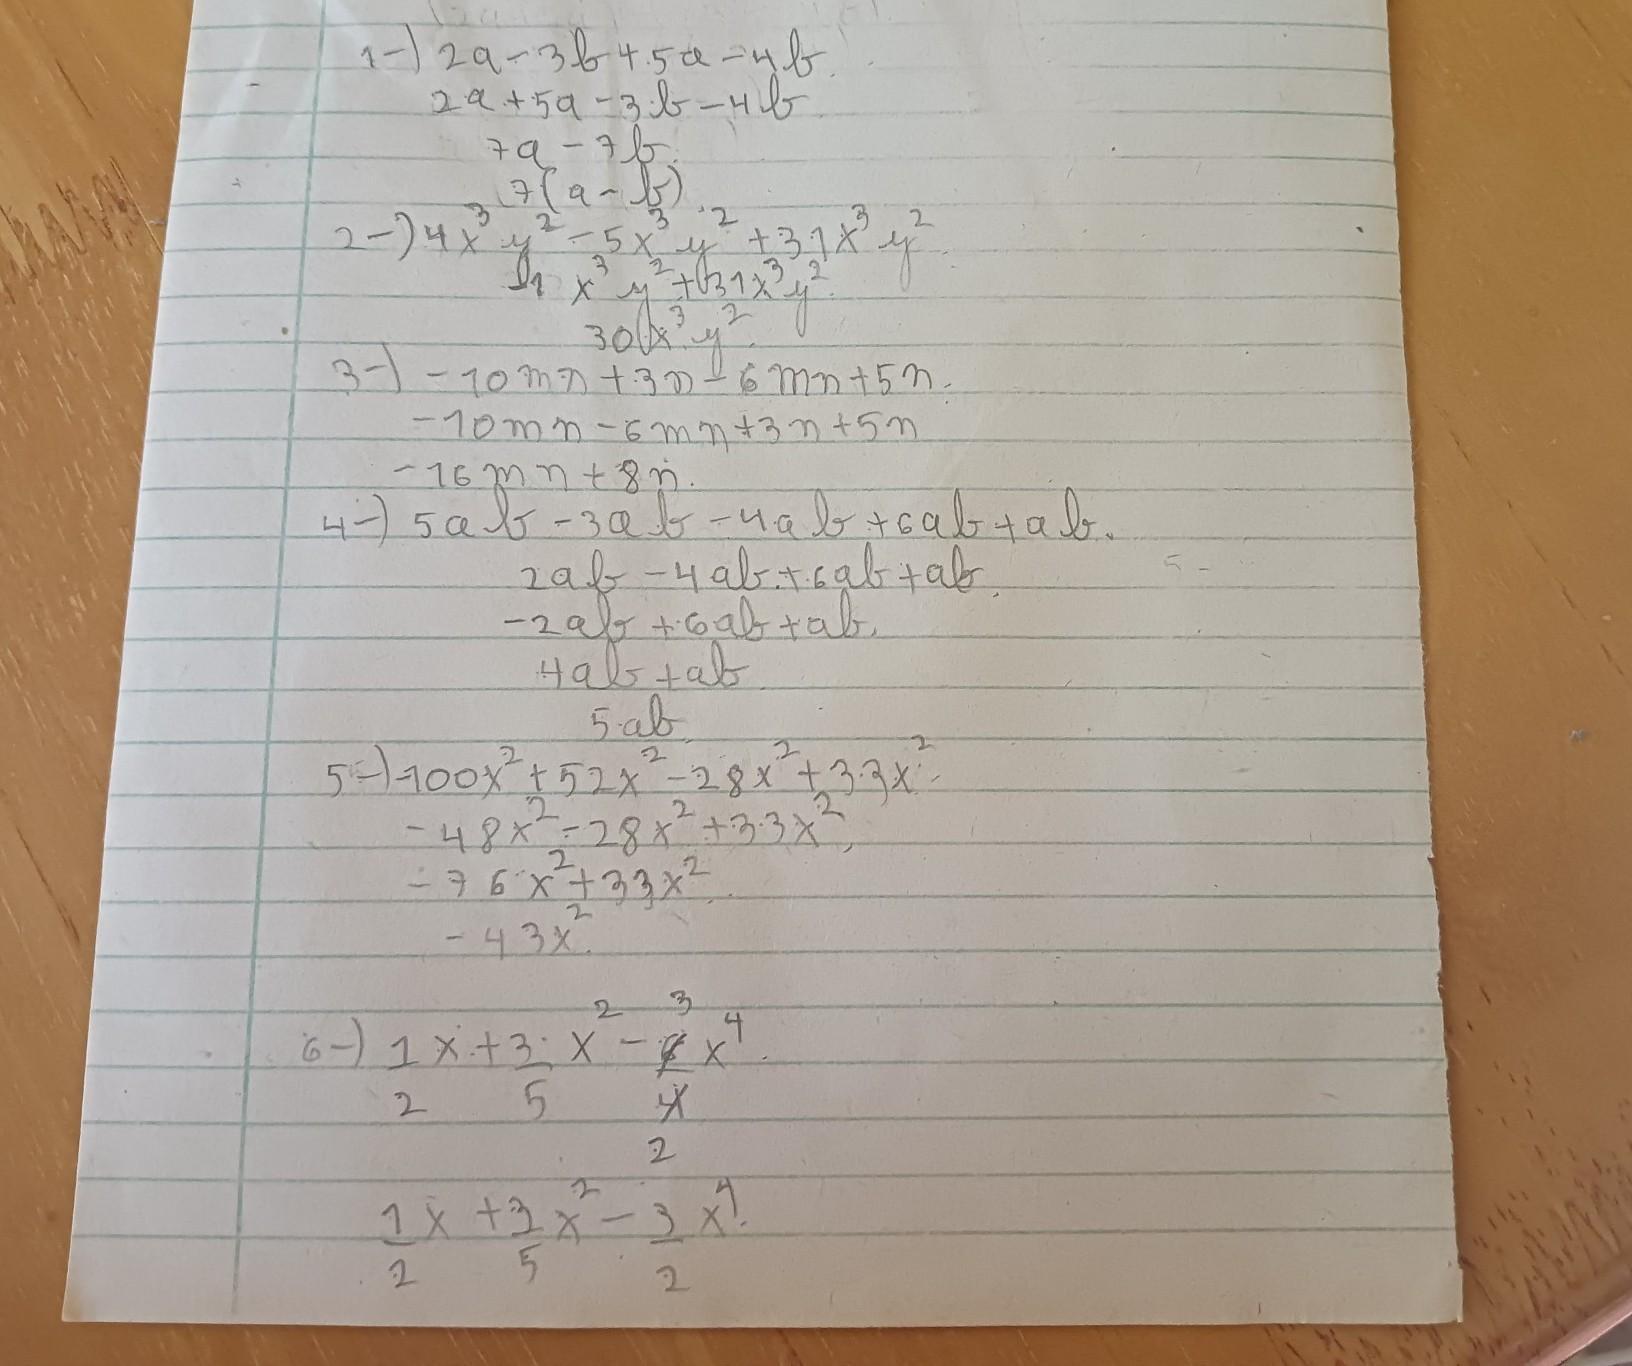 1-) 2a-3b+5a-4b.
2a+5a-3b-4b
7a-7b.
7(a-b).
2-) 4x³y²-5x³y²+31x³y².
-1x³y²+31x³y².
30x³y².
3-) -10mn+3n-6mn+5n.
-10mn-6mn+3n+5n
-16mn+8n.
4-) 5ab-3ab-4ab+6ab+ab.
2ab-4ab+6ab+ab.
-2ab+6ab+ab.
4ab+ab
5ab.
5-) -100x²+52x²-28x²+33x².
-48x²-28x²+33x².
-76x²+33x².
-43x².
6-) 1/2 x + 3/5 x² - 6/4 x⁴.
3
2
1/2 x + 3/5 x² - 3/2 x⁴.